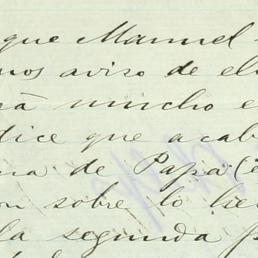 que Manuel
nos aviso de el
rá mincho e
dice que acab
na de Papa (e
on sobre lo
la segunda p